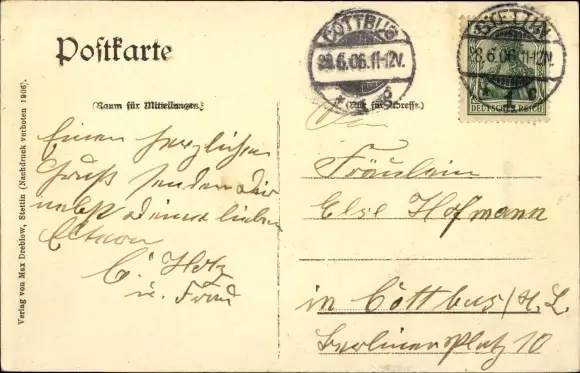 Postkarte
(Raum für Mitteilungen.)
Einen herzlichen
Gruß senden Dir
nebst Deinen lieben
Eltern
C. Hotz
u. Frau
Verlag von Max Dreblow, Stettin (Nachdruck verboten 1906).
COTTBUS
29.6.06.11-12V.
STETTIN
8.6.06.11-12N.
1
DEUTSCHES REICH
(Nur für Adresse.)
An
Fräulein
Else Hofmann
in Cottbus/N. L.
Berliner Platz 10